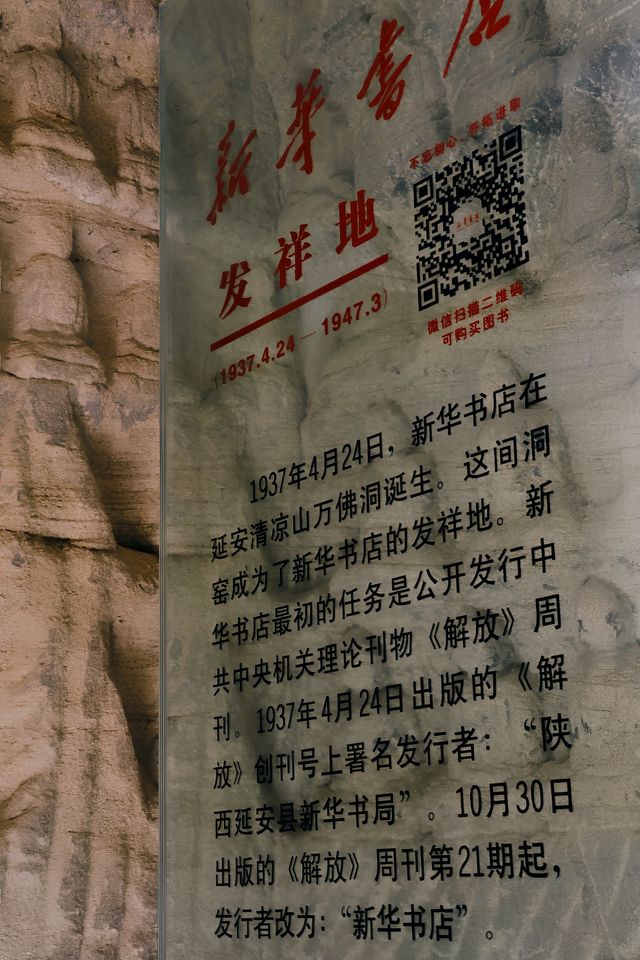 新華書店
发祥地
(1937.4.24—1947.3)
不忘初心 开拓进取
微信扫描二维码
可购买图书
1937年4月24日，新华书店在
延安清凉山万佛洞诞生。这间洞
窑成为了新华书店的发祥地。新
华书店最初的任务是公开发行中
共中央机关理论刊物《解放》周
刊。1937年4月24日出版的《解
放》创刊号上署名发行者：“陕
西延安县新华书局”。10月30日
出版的《解放》周刊第21期起，
发行者改为：“新华书店”。